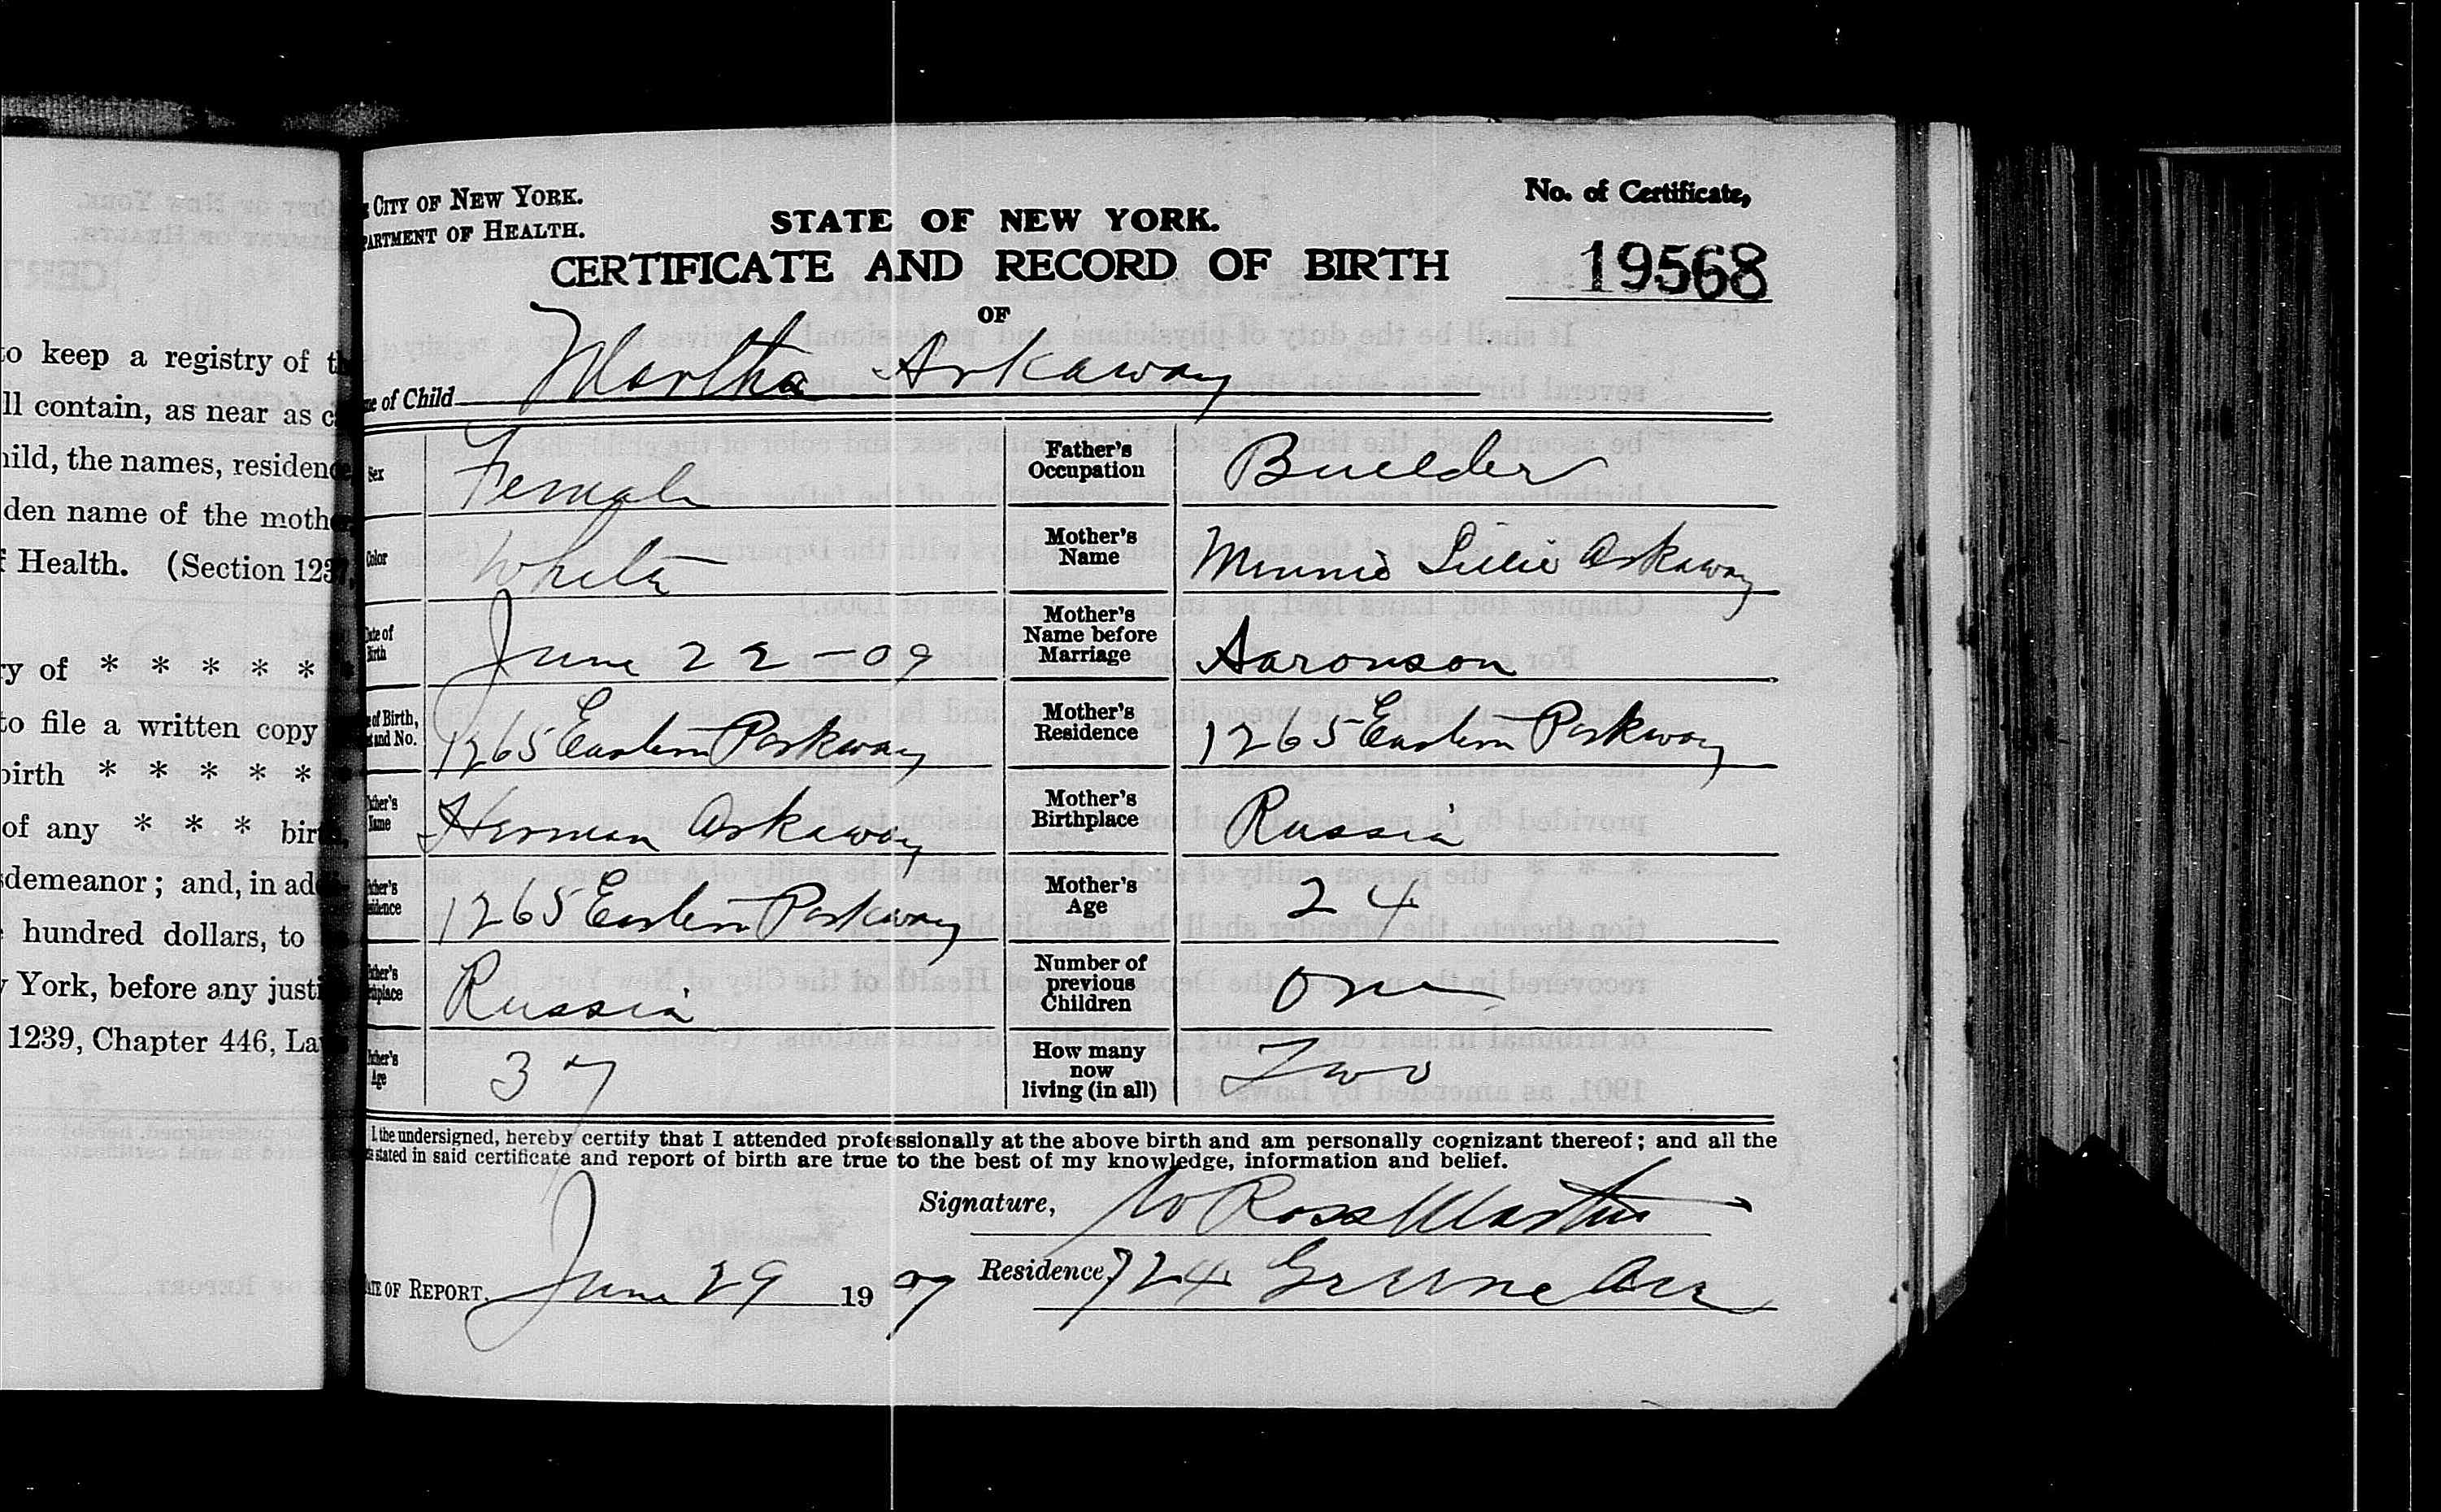 to keep a registry of th
ll contain, as near as c
hild, the names, residence
den name of the mothe
f Health. (Section 1237,
ry of * * * * *
to file a written copy
birth * * * * *
of any * * * birth,
sdemeanor; and, in ad
hundred dollars, to
York, before any justi
1239, Chapter 446, La
CITY OF NEW YORK.
PARTMENT OF HEALTH.
STATE OF NEW YORK.
No. of Certificate,
CERTIFICATE AND RECORD OF BIRTH
19568
OF
me of Child Martha Arkaway
Sex Female
Father's Occupation Builder
Color White
Mother's Name Minnie Lillie Arkaway
Date of Birth June 22-09
Mother's Name before Marriage Aaronson
of Birth, and No. 1265 Eastern Parkway
Mother's Residence 1265 Eastern Parkway
ther's Name Herman Arkaway
Mother's Birthplace Russia
ther's sidence 1265 Eastern Parkway
Mother's Age 24
ther's thplace Russia
Number of previous Children One
ther's Age 37
How many now living (in all) Two
I, the undersigned, hereby certify that I attended professionally at the above birth and am personally cognizant thereof; and all the
stated in said certificate and report of birth are true to the best of my knowledge, information and belief.
Signature, W Ross Martin
ATE OF REPORT, June 29 1909
Residence, 724 Greene Ave